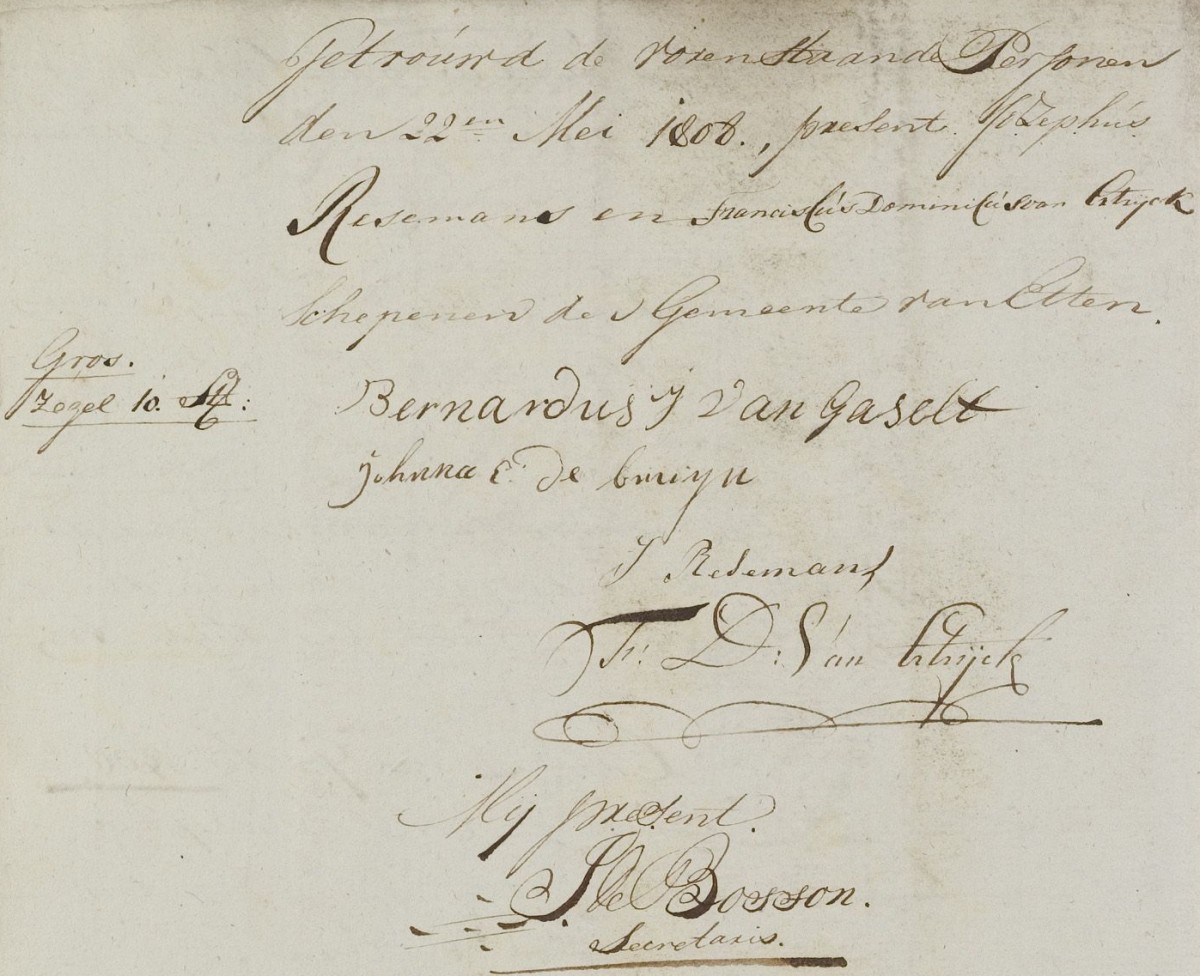 Getroúwd de vorenstaande Personen
den 22en Mei 1808., present Jozephús
Resemans en Franciscús Dominicús van Etrijck
Schepenen der Gemeente van Etten.
Gros.
Zegel 10. St:
Bernardus J van Gaselt
Johnna E: de bruijn
J Resemans
Fr: D: Van Etrijck
Mij present.
J de Bosson.
Secretaris.